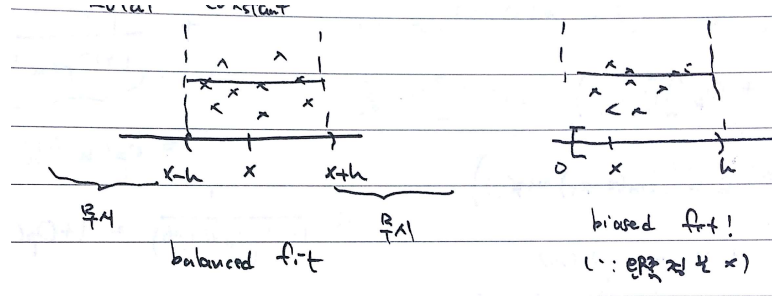 constant
x-h x x+h
0 x h
무시
무시
balanced fit
biased fit!
(∵ 왼쪽 정보 x)